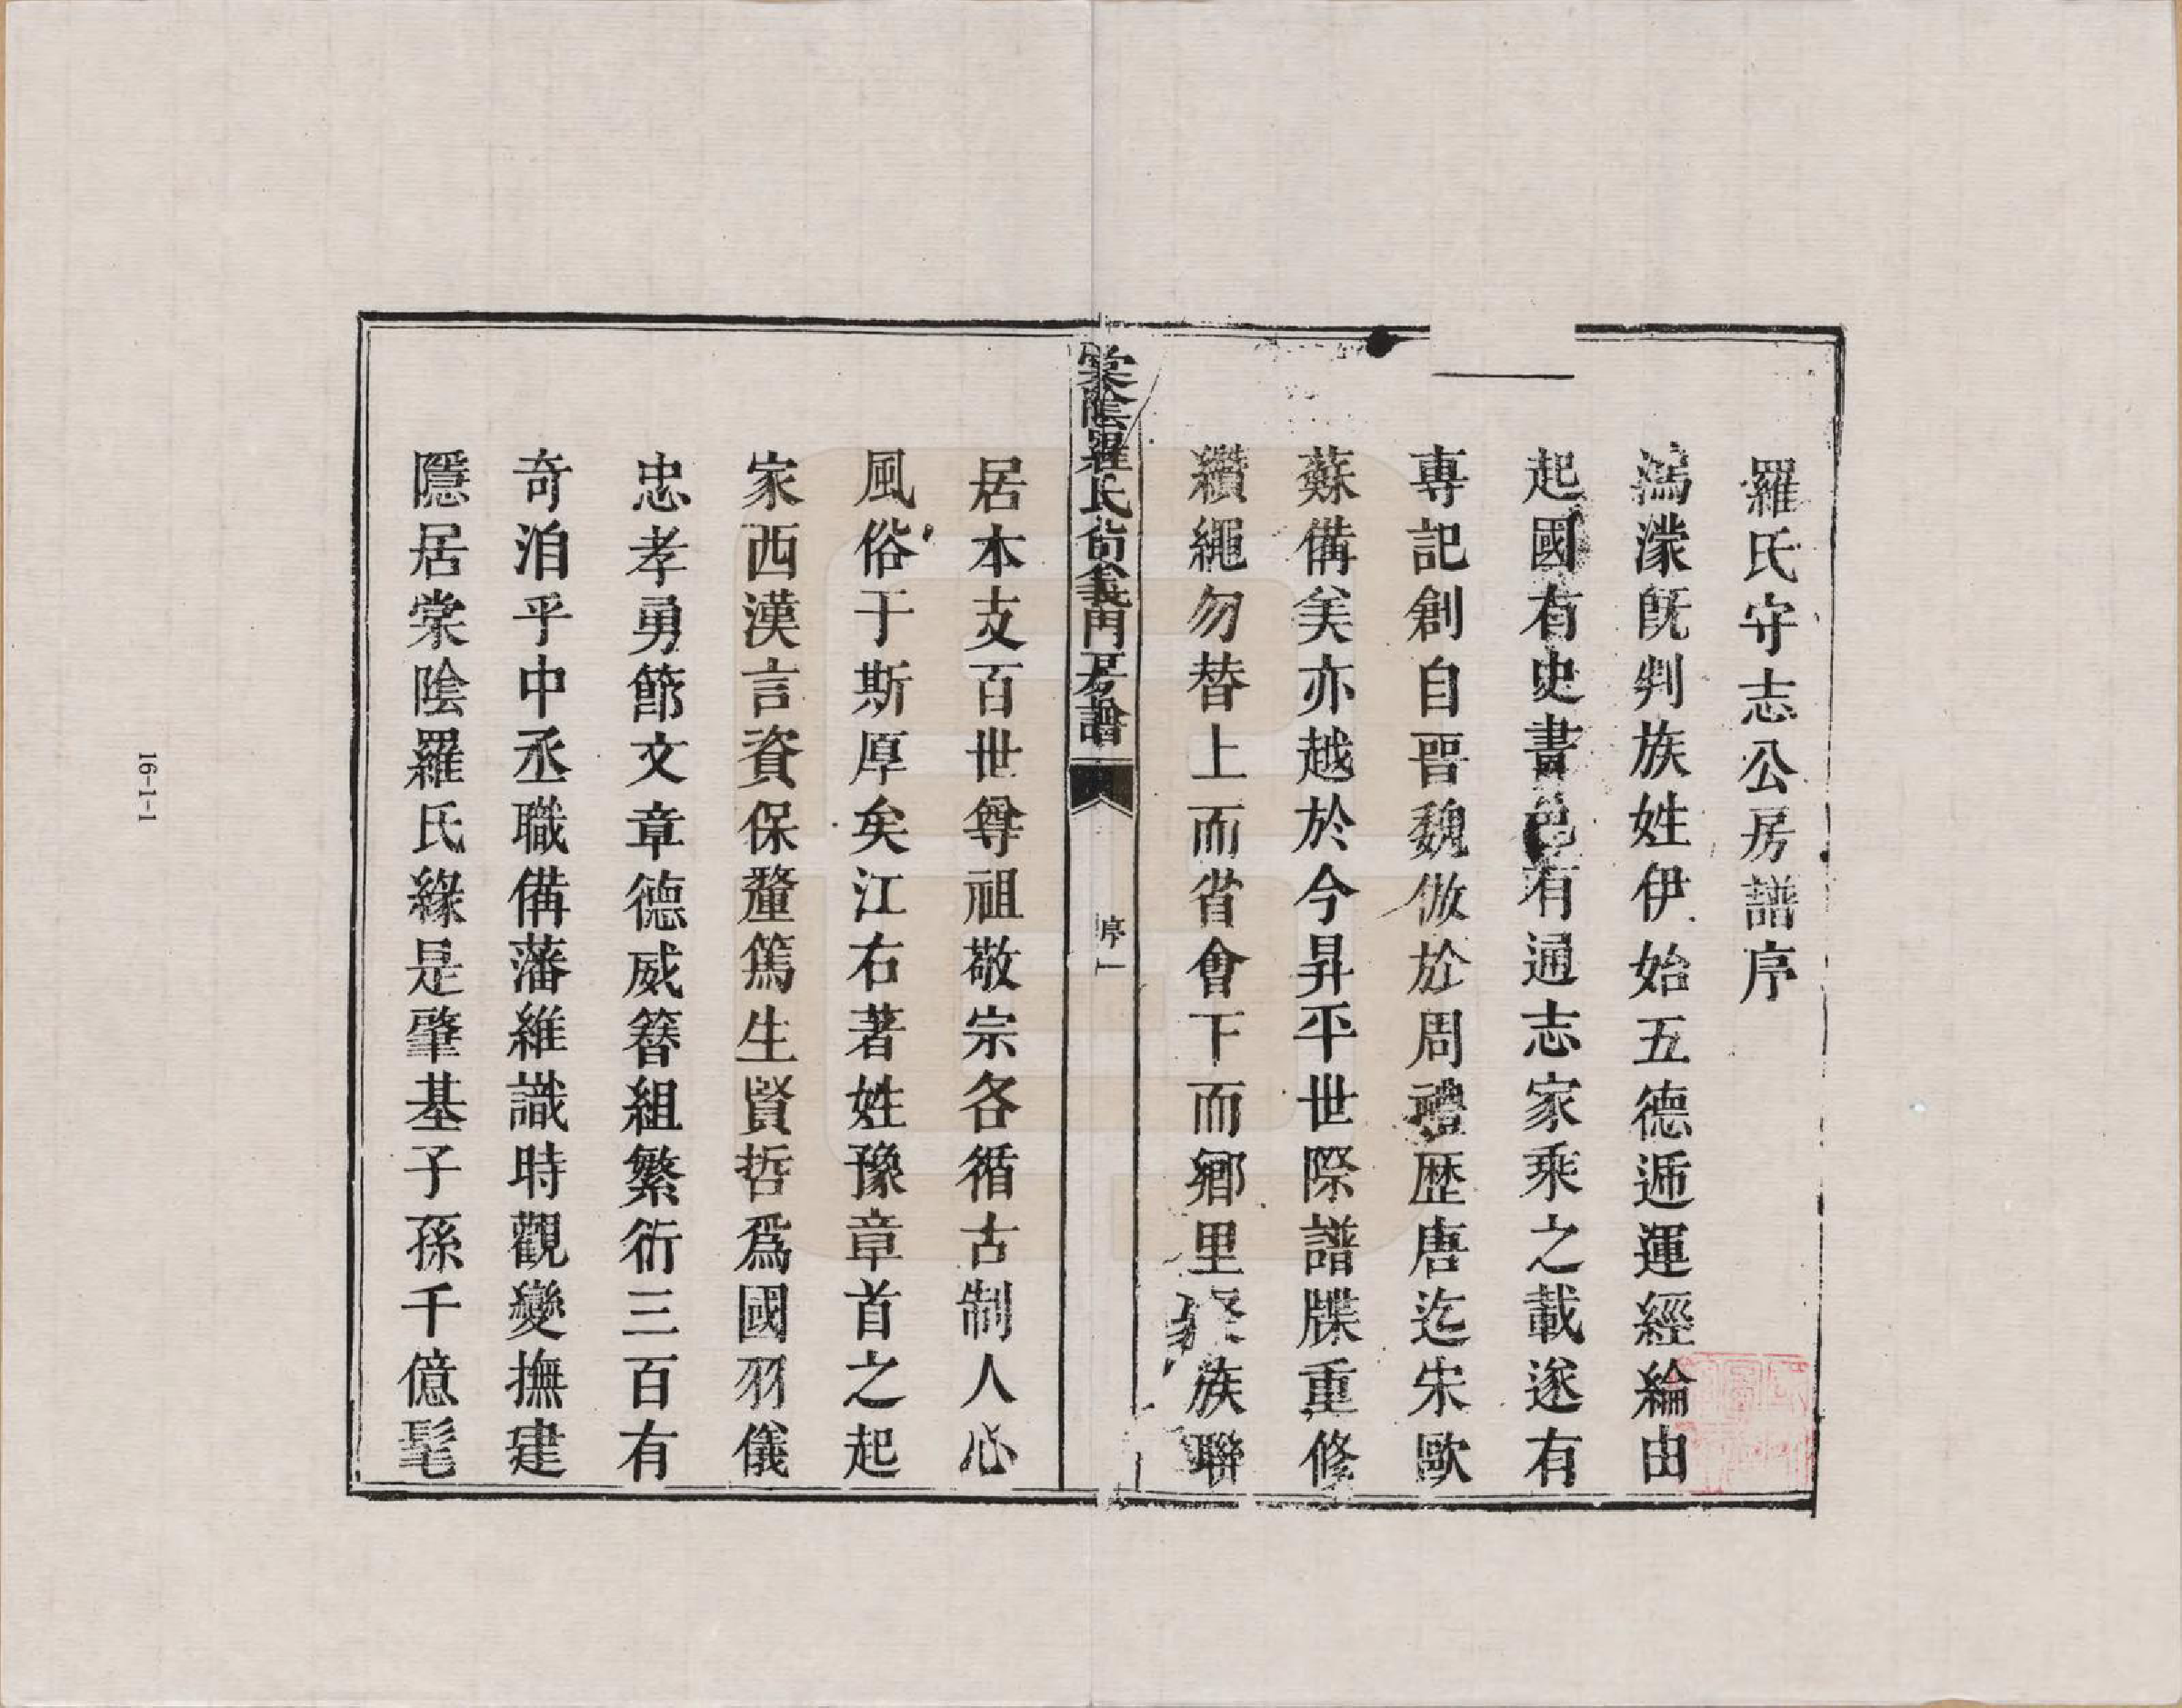 羅氏守志公房譜序
濛旣判族姓伊始五德遞運經綸由
起國有史書邑有通志家乘之載遂有
專記創自晋魏倣於周禮歷唐迄宋歐
蘇備矣亦越於今昇平世際譜牒重修
纘繩勿替上而省會下而鄉里聚族聯
棠陰羅氏貨義門房譜
序一
居本支百世尊祖敬宗各循古制人心
風俗于斯厚矣江右著姓豫章首之起
家西漢言資保釐篤生賢哲爲國羽儀
忠孝勇節文章德威簪組繁衍三百有
奇洎乎中丞職備藩維識時觀變撫建
隱居棠陰羅氏緣是肇基子孫千億髦
16-1-1